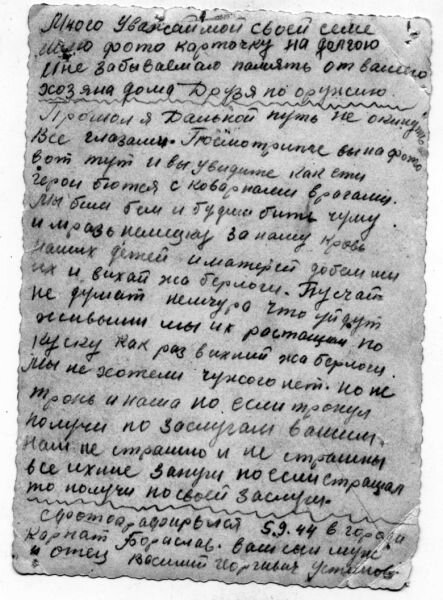 Много Уважаймой своей семе
шлю фото карточку на долгою
и не забываемаю память от вашего
хозяна дома Друзя по оружию.
Прошол я Дальной путь не окинуть
Все глазами. Посмотрите вы на фото
вот тут и вы увидите как эти
герои бютса с коварнами врагами.
Мы били бем и будим бить чуму
и мразь немецку за нашу кровь
наших детей и матерей добем ми
их и вихай жа берлоги. Пускай
не думат немчура что уйдут
живыми мы их ростащим по
куску как раз вихний жа берлоги.
Мы не хотели чужого нет. но не
тронь и наша но если тронул
получи по заслугам вашим.
нам не страшно и не страшны
все ихние запуги по если стращал
то получи по своей заслуги.
Сфотографирвался 5.9.44 в городи
Карпат Борислав. ваш сын муж
и отец Василий Горгивич Устинов